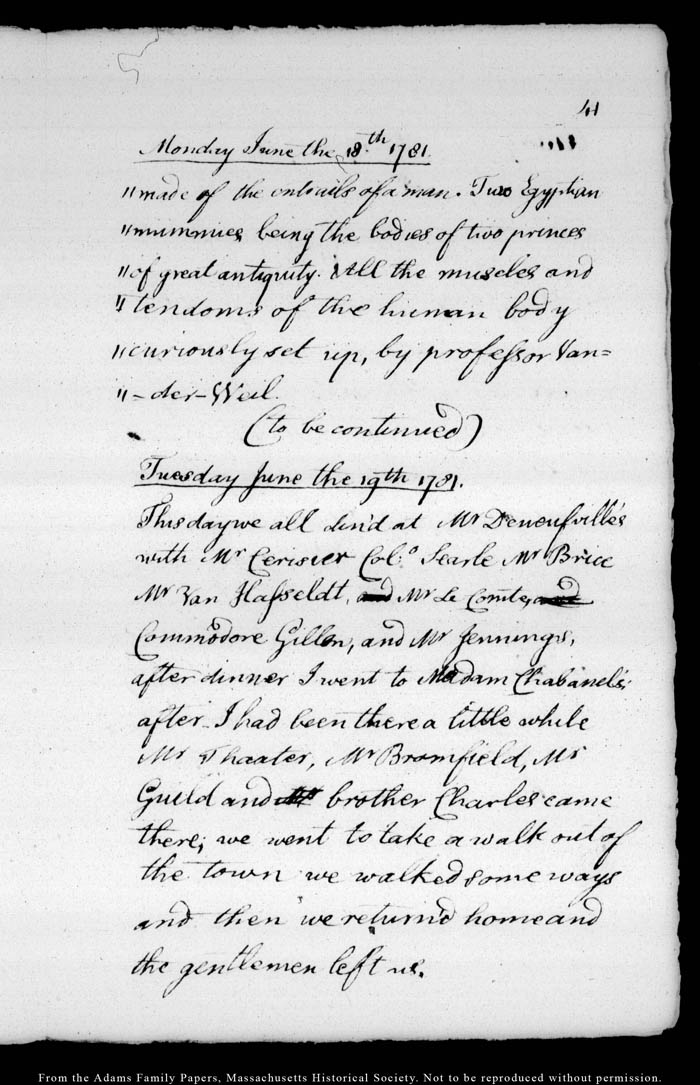 41
Monday June the 18.th 1781.
"made of the entrails of a man. Two Egyptian
"mummies being the bodies of two princes
"of great antiquity. All the muscles and
"tendoms of the human body
"curiously set up, by professor Van=
"-der-Weil.
(to be continued)
Tuesday June the 19th 1781.
This day we all din'd at Mr Deneufville's
with Mr Cerisier Col.o Searle Mr Brice
Mr Van Hasseldt, and Mr Le Comte, and
Commodore Gillon, and Mr Jennings,
after dinner I went to Madam Chabanel's;
after I had been there a little while
Mr Thaxter, Mr Bromfield, Mr
Guild and Mr brother Charles came
there; we went to take a walk out of
the town we walked some ways
and then we return'd home and
the gentlemen left us.
From the Adams Family Papers, Massachusetts Historical Society. Not to be reproduced without permission.